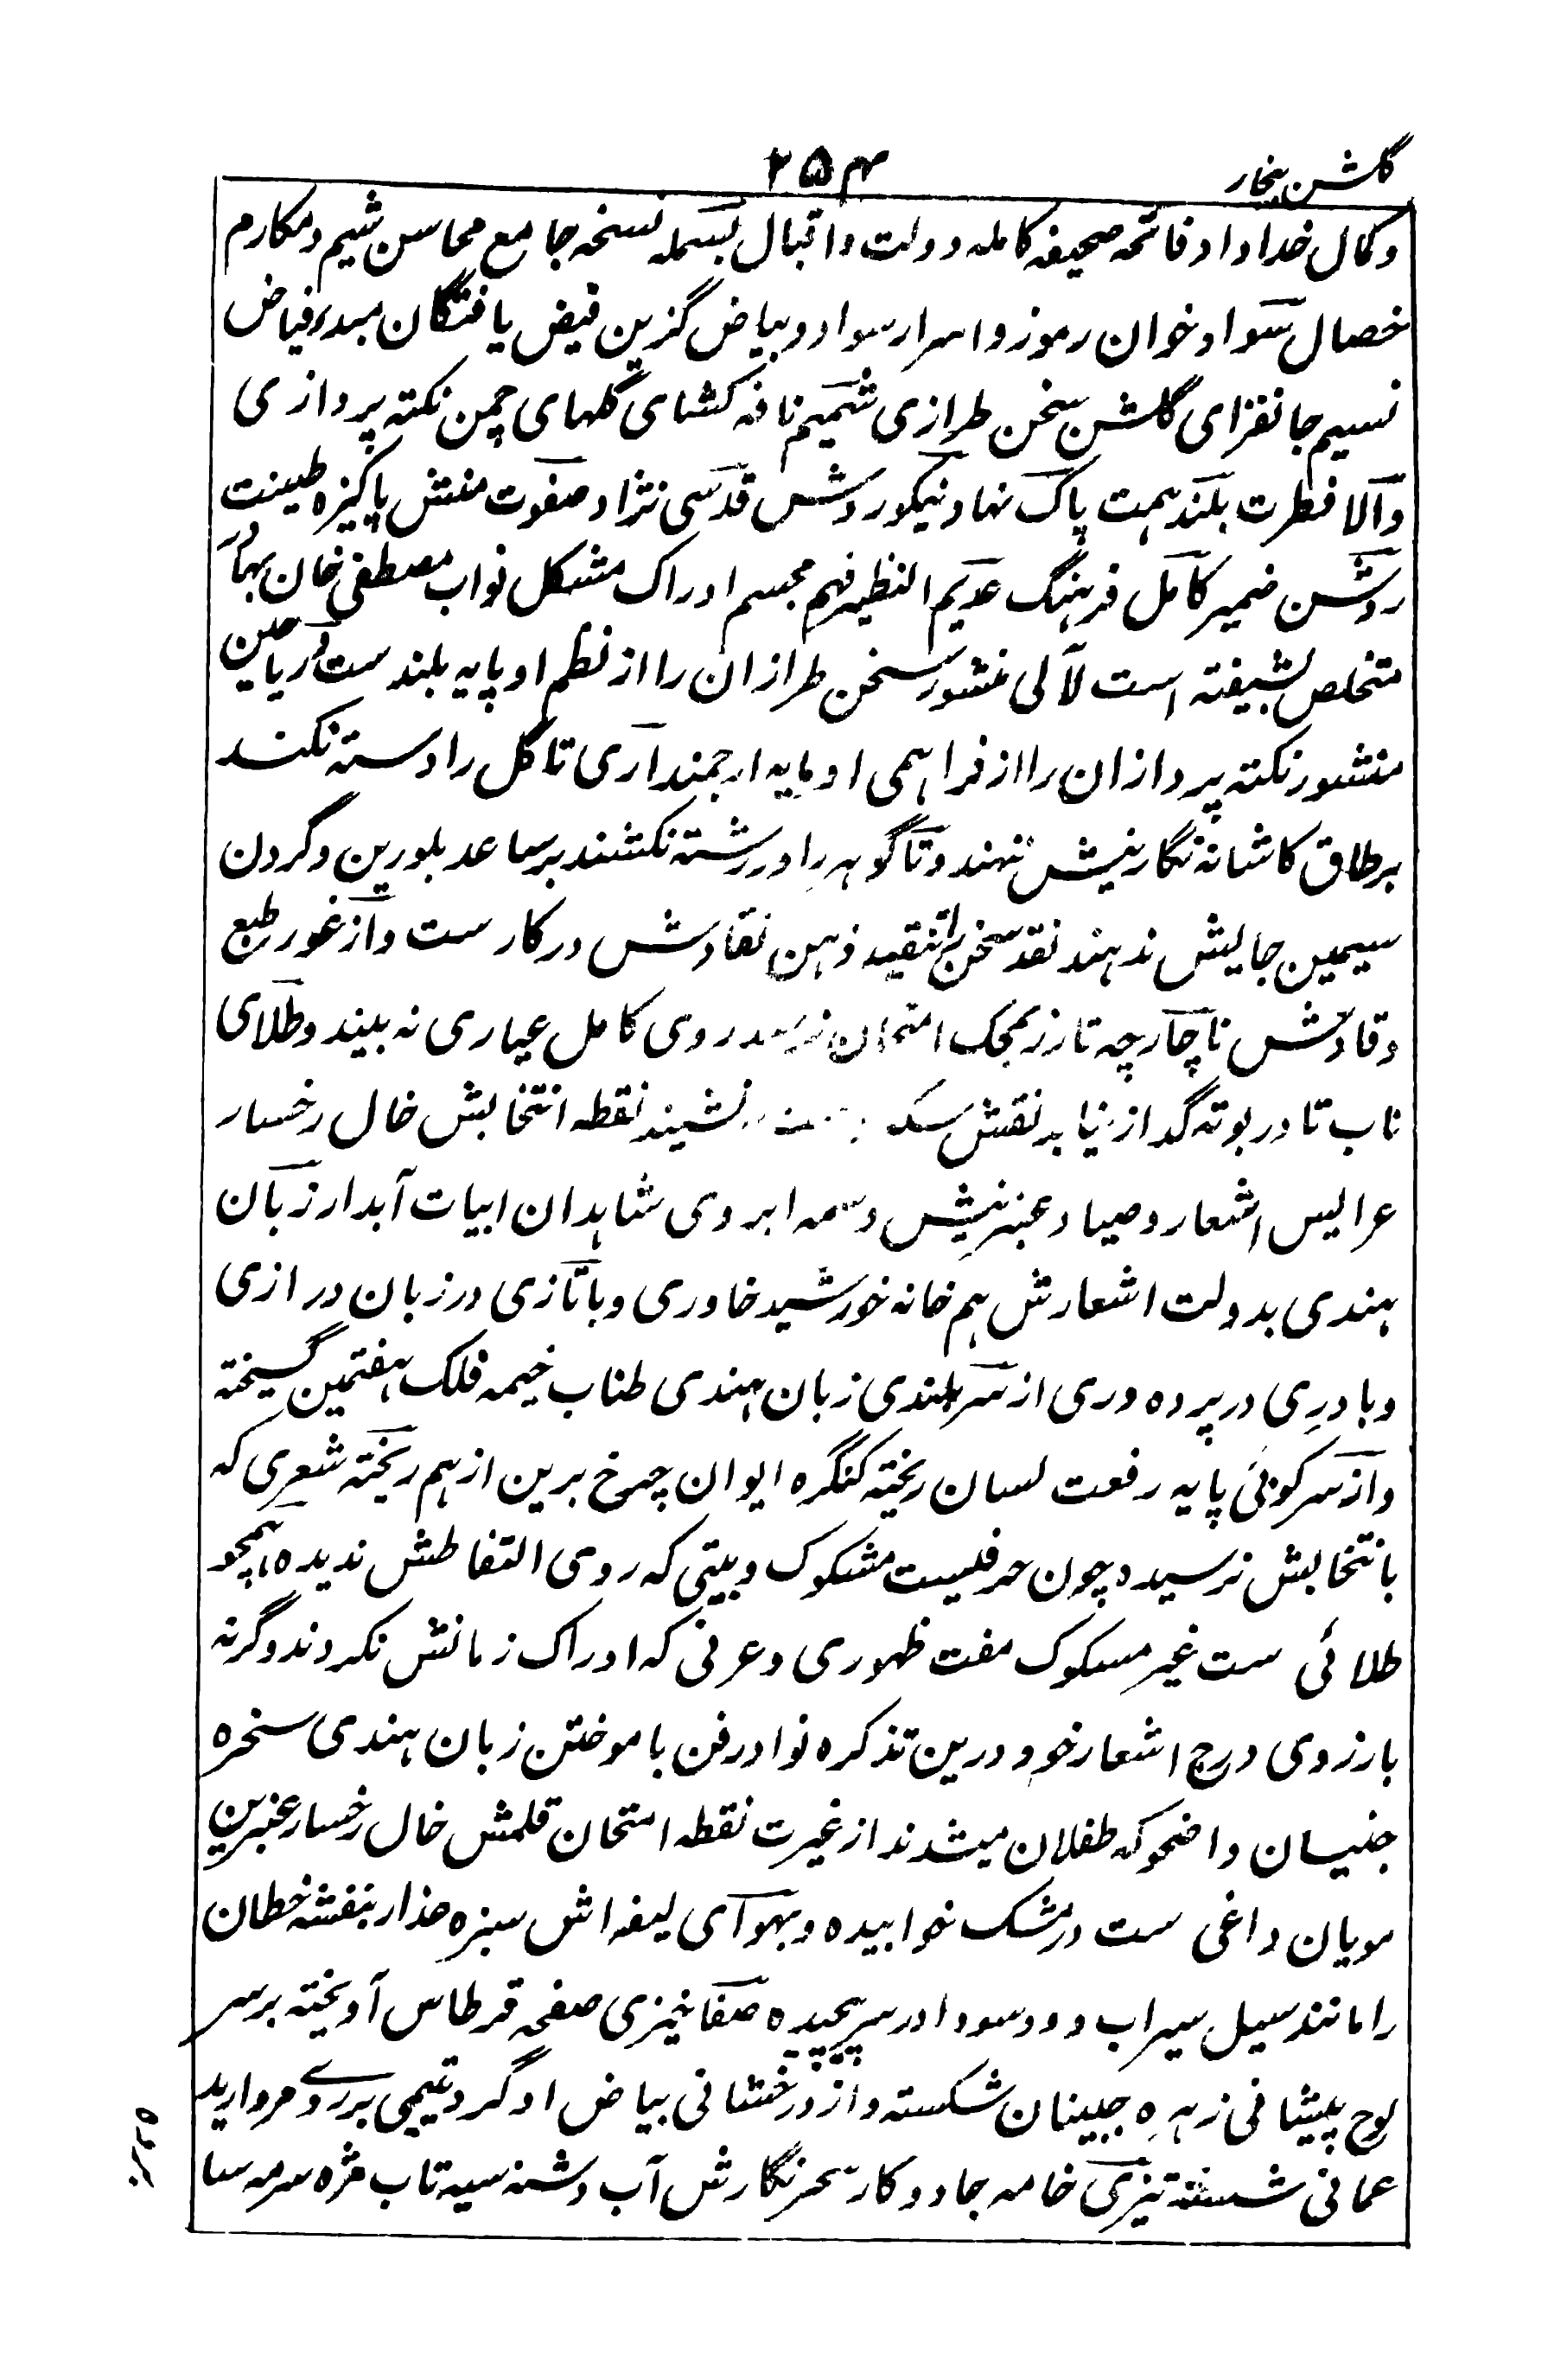 گلشن بیخار
۲۵۴
وکمال خداداد فاتحه صحیفه کامله دولت واقبال بسمله نسخه جامع محاسن شیم ومکارم
خصال سواد خوان رموز واسرار سواد وبیاض گزین فیض یافتگان مبدء فیاض
نسیم جانفزای گلشن سخن طرازی شمیم نافه کشای گلهای چمن نکته پردازی
والا فطرت بلند همت پاک نهاد نیکو روش قدسی نژاد صفوت منش پاکیزه طینت
روشن ضمیر کامل فرهنگ عدیم النظیر فهم مجسم ادراک مشکل نواب مصطفی خان بهادر
متخلص بشیفته است لآلی منثور سخن طرازان را از نظم او پایه بلند ست و ریاحین
منثور نکته پردازان را از فراهمی او مایه ارجمند آری تا گل را دسته نکند
بر طاق کاشانه نگارینش ننهند و تا گوهر را در رشته نکشند بر ساعد بلورین و گردن
سیمین جایش ندهند نقد سخن را تنقید ذهن نقادش در کار ست و از غور طبع
وقادش ناچار چه تا زر بمحک امتحان نرسد روی کامل عیاری نه بیند وطلای
ناب تا در بوته گداز نیاید نقش سکه نشیند نقطه انتخابش خال رخسار
عرایس اشعار وصاد عنبرینش وسمه ابروی شاهدان ابیات آبدار زبان
هندی بدولت اشعارش هم خانه خورشید خاوری و با تازی در زبان درازی
و با دری در پرده دری از سربلندی زبان هندی طناب خیمه فلک هفتمین گسیخته
و از سرکوبی پایه رفعت لسان ریخته کنگره ایوان چرخ برین از هم ریخته شعری که
بانتخابش نرسیده چون حرفیست مشکوک و بیتی که روی التفاطش ندیده همچو
طلائی ست غیر مسکوک مفت ظهوری و عرفی که ادراک زمانش نکردند وگرنه
بارزوی درج اشعار خود درین تذکره نوادر فن باموختن زبان هندی سخره
جنیسان و اضحوکه طفلان میشدند از غیرت نقطه امتحان قلمش خال رخسار عنبرین
مویان داغی ست در مشک خوابیده و بهوای لیفه اش سبزه عذار بنفشه خطان
را مانند سیل سیراب دود سودا در سر پیچیده صفا خیزی صفحه قرطاس آویخته بر سر
لوح پیشانی زهره جبینان شکسته و از درخشانی بیاض او گرد یتیمی بر روی مروارید
عمانی نشسته تیزی خامه جادو کار سحر نگارش آب دشنه سیه تاب مژه سرمه سا